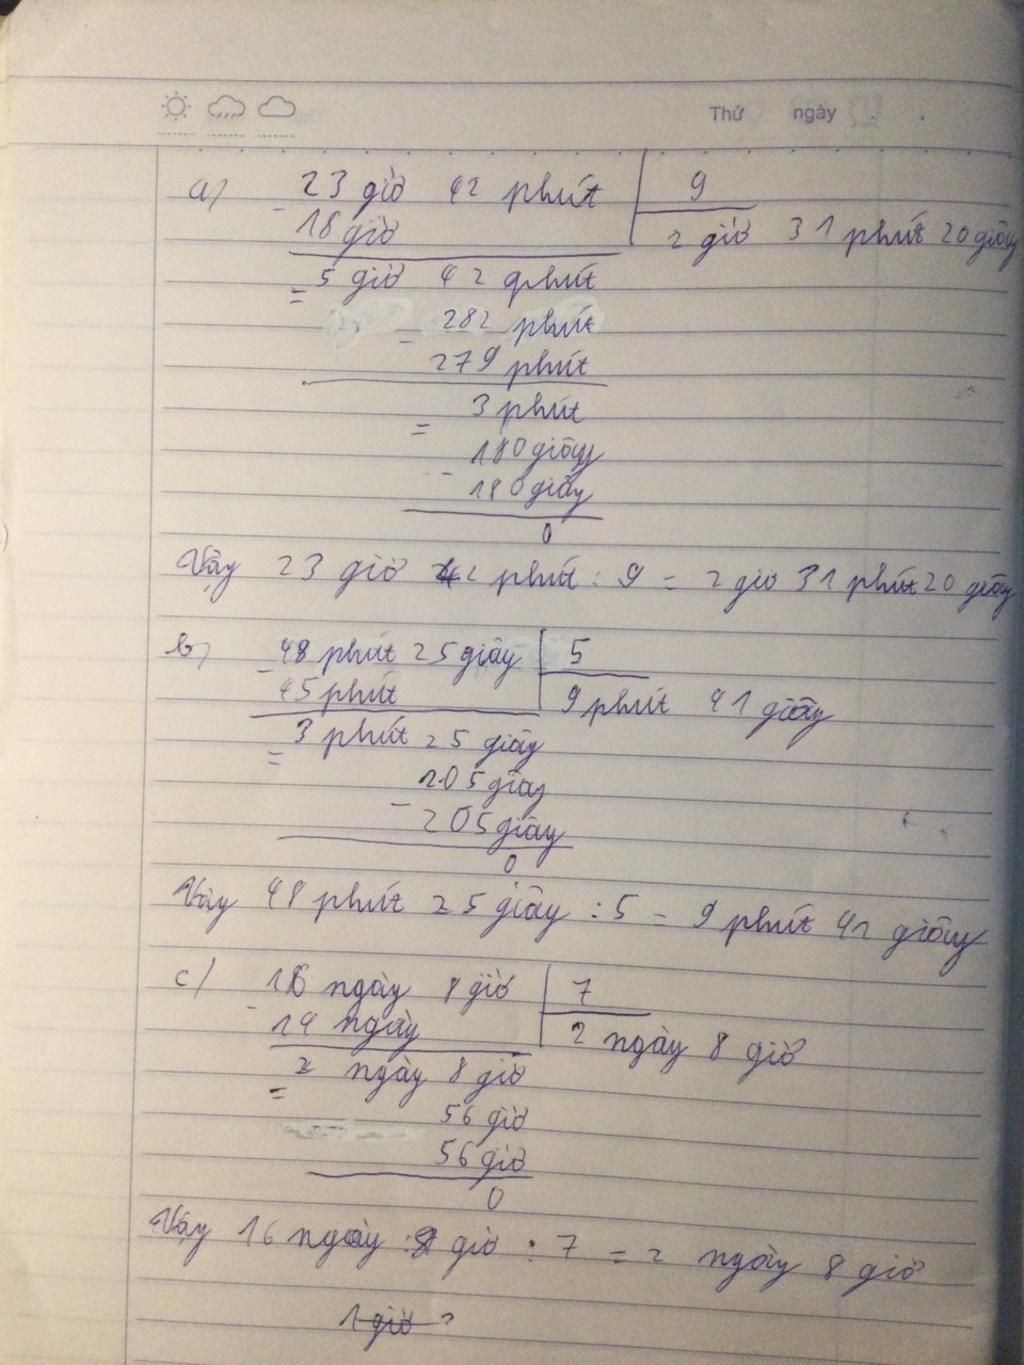 Thứ ngày
a) 23 giờ 42 phút 9
18 giờ 2 giờ 31 phút 20 giây
= 5 giờ 42 phút
- 282 phút
279 phút
= 3 phút
- 180 giây
180 giây
0
Vậy 23 giờ 42 phút : 9 = 2 giờ 31 phút 20 giây
b) - 48 phút 25 giây 5
45 phút 9 phút 41 giây
= 3 phút 25 giây
- 205 giây
205 giây
0
Vậy 48 phút 25 giây : 5 = 9 phút 41 giây
c) - 16 ngày 8 giờ 7
14 ngày 2 ngày 8 giờ
= 2 ngày 8 giờ
56 giờ
56 giờ
0
Vậy 16 ngày 8 giờ : 7 = 2 ngày 8 giờ
1 giờ =